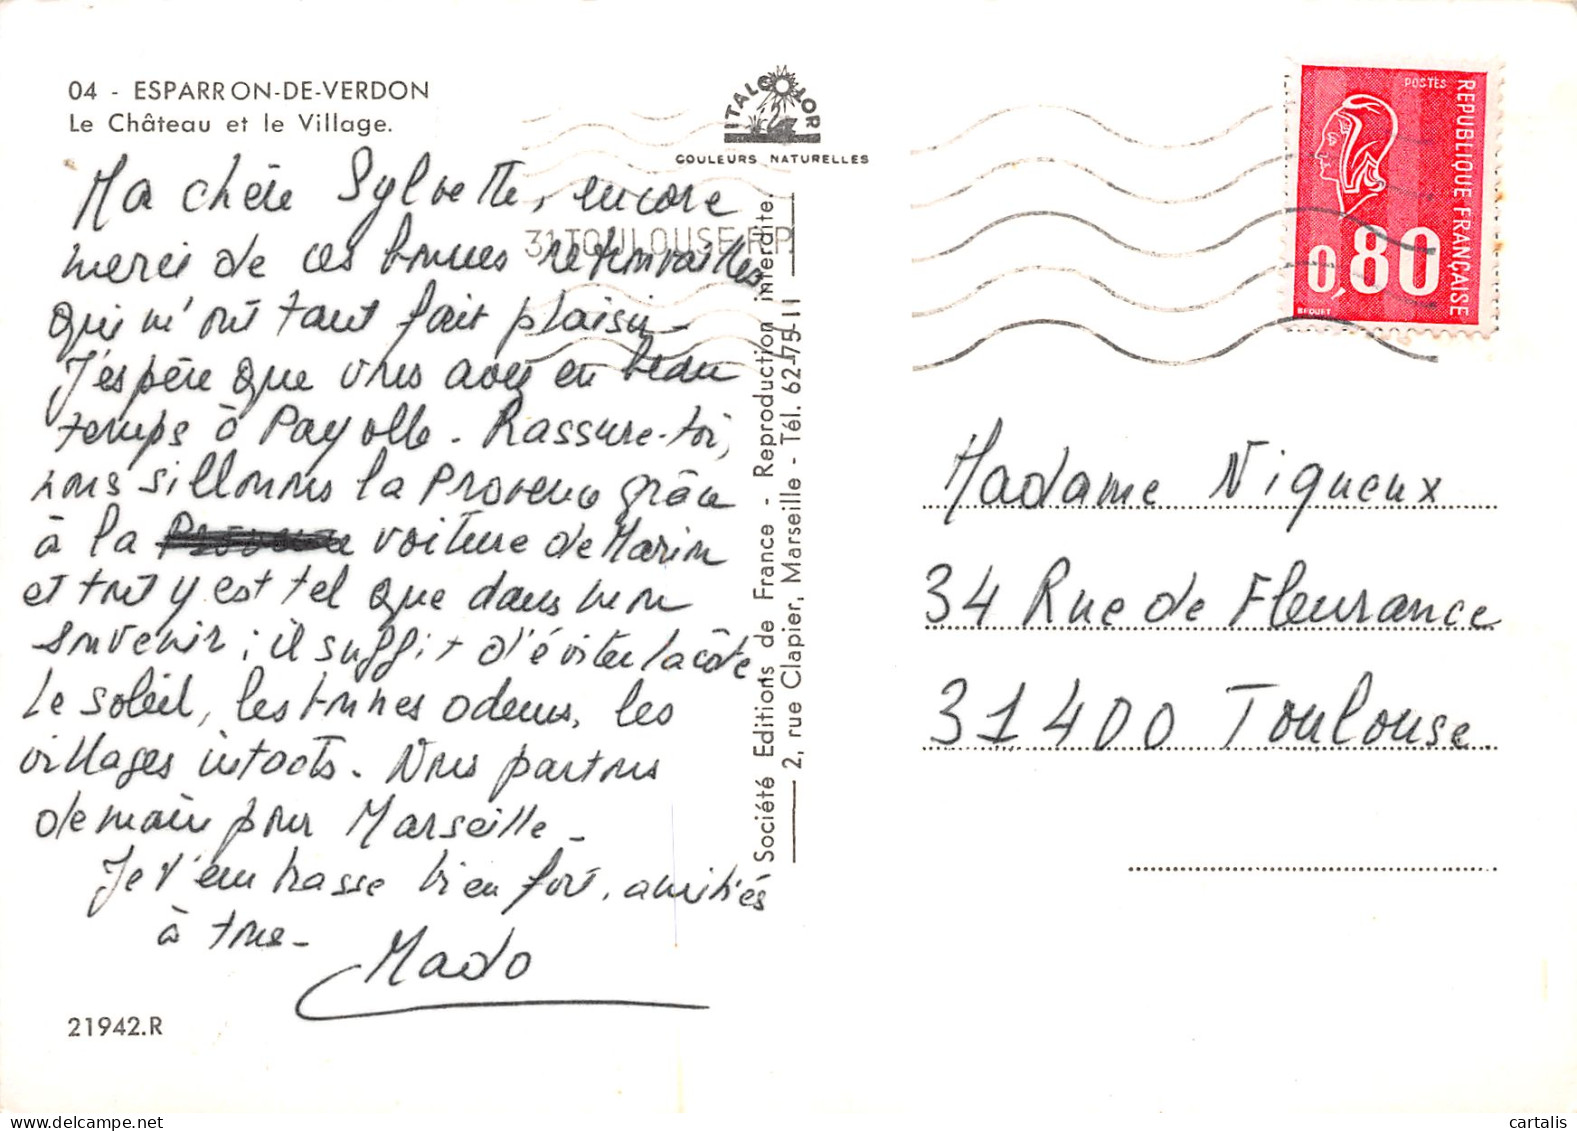 04 - ESPARRON-DE-VERDON
Le Château et le Village.
ITALCOLOR
COULEURS NATURELLES
31 TOULOUSE R.P.
Ma chère Sylvette, encore
merci de ces bonnes retrouvailles
qui m'ont tant fait plaisir -
J'espère que vous avez eu beau
temps à Payolle. Rassure-toi,
nous sillonnons la Provence grâce
à la voiture de Marin
et tout y est tel que dans mon
souvenir ; il suffit d'éviter la côte.
Le soleil, les bonnes odeurs, les
villages intacts. Nous partons
demain pour Marseille -
Je t'embrasse bien fort, amitiés
à tous -
Mado
21942.R
Société Editions de France - Reproduction interdite.
2, rue Clapier, Marseille - Tél. 62-75-11
POSTES
REPUBLIQUE FRANÇAISE
0,80
BEQUET
Madame Niqueux
34 Rue de Fleurance
31400 Toulouse
cartalis